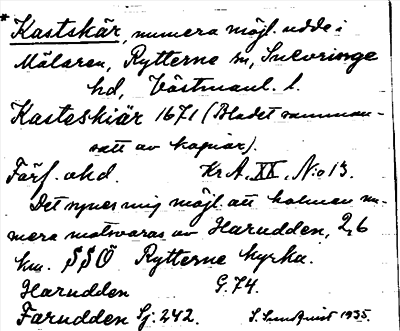 * Kastskär, numera möjl. udde i
Mälaren, Rytterne sn, Snevringe
hd, Västmanl. l.
Kasteskiär 1671 (Bladet samman-
satt av kopior).
Förf. okd. Kr.A. XX, N:o 13.
Det synes mig möjl. att holmen nu-
mera motsvaras av Harudden, 2,6
km. SSÖ Rytterne kyrka.
Harudden G. 74.
Farudden Sj. 242. S. Sundqvist 1935.